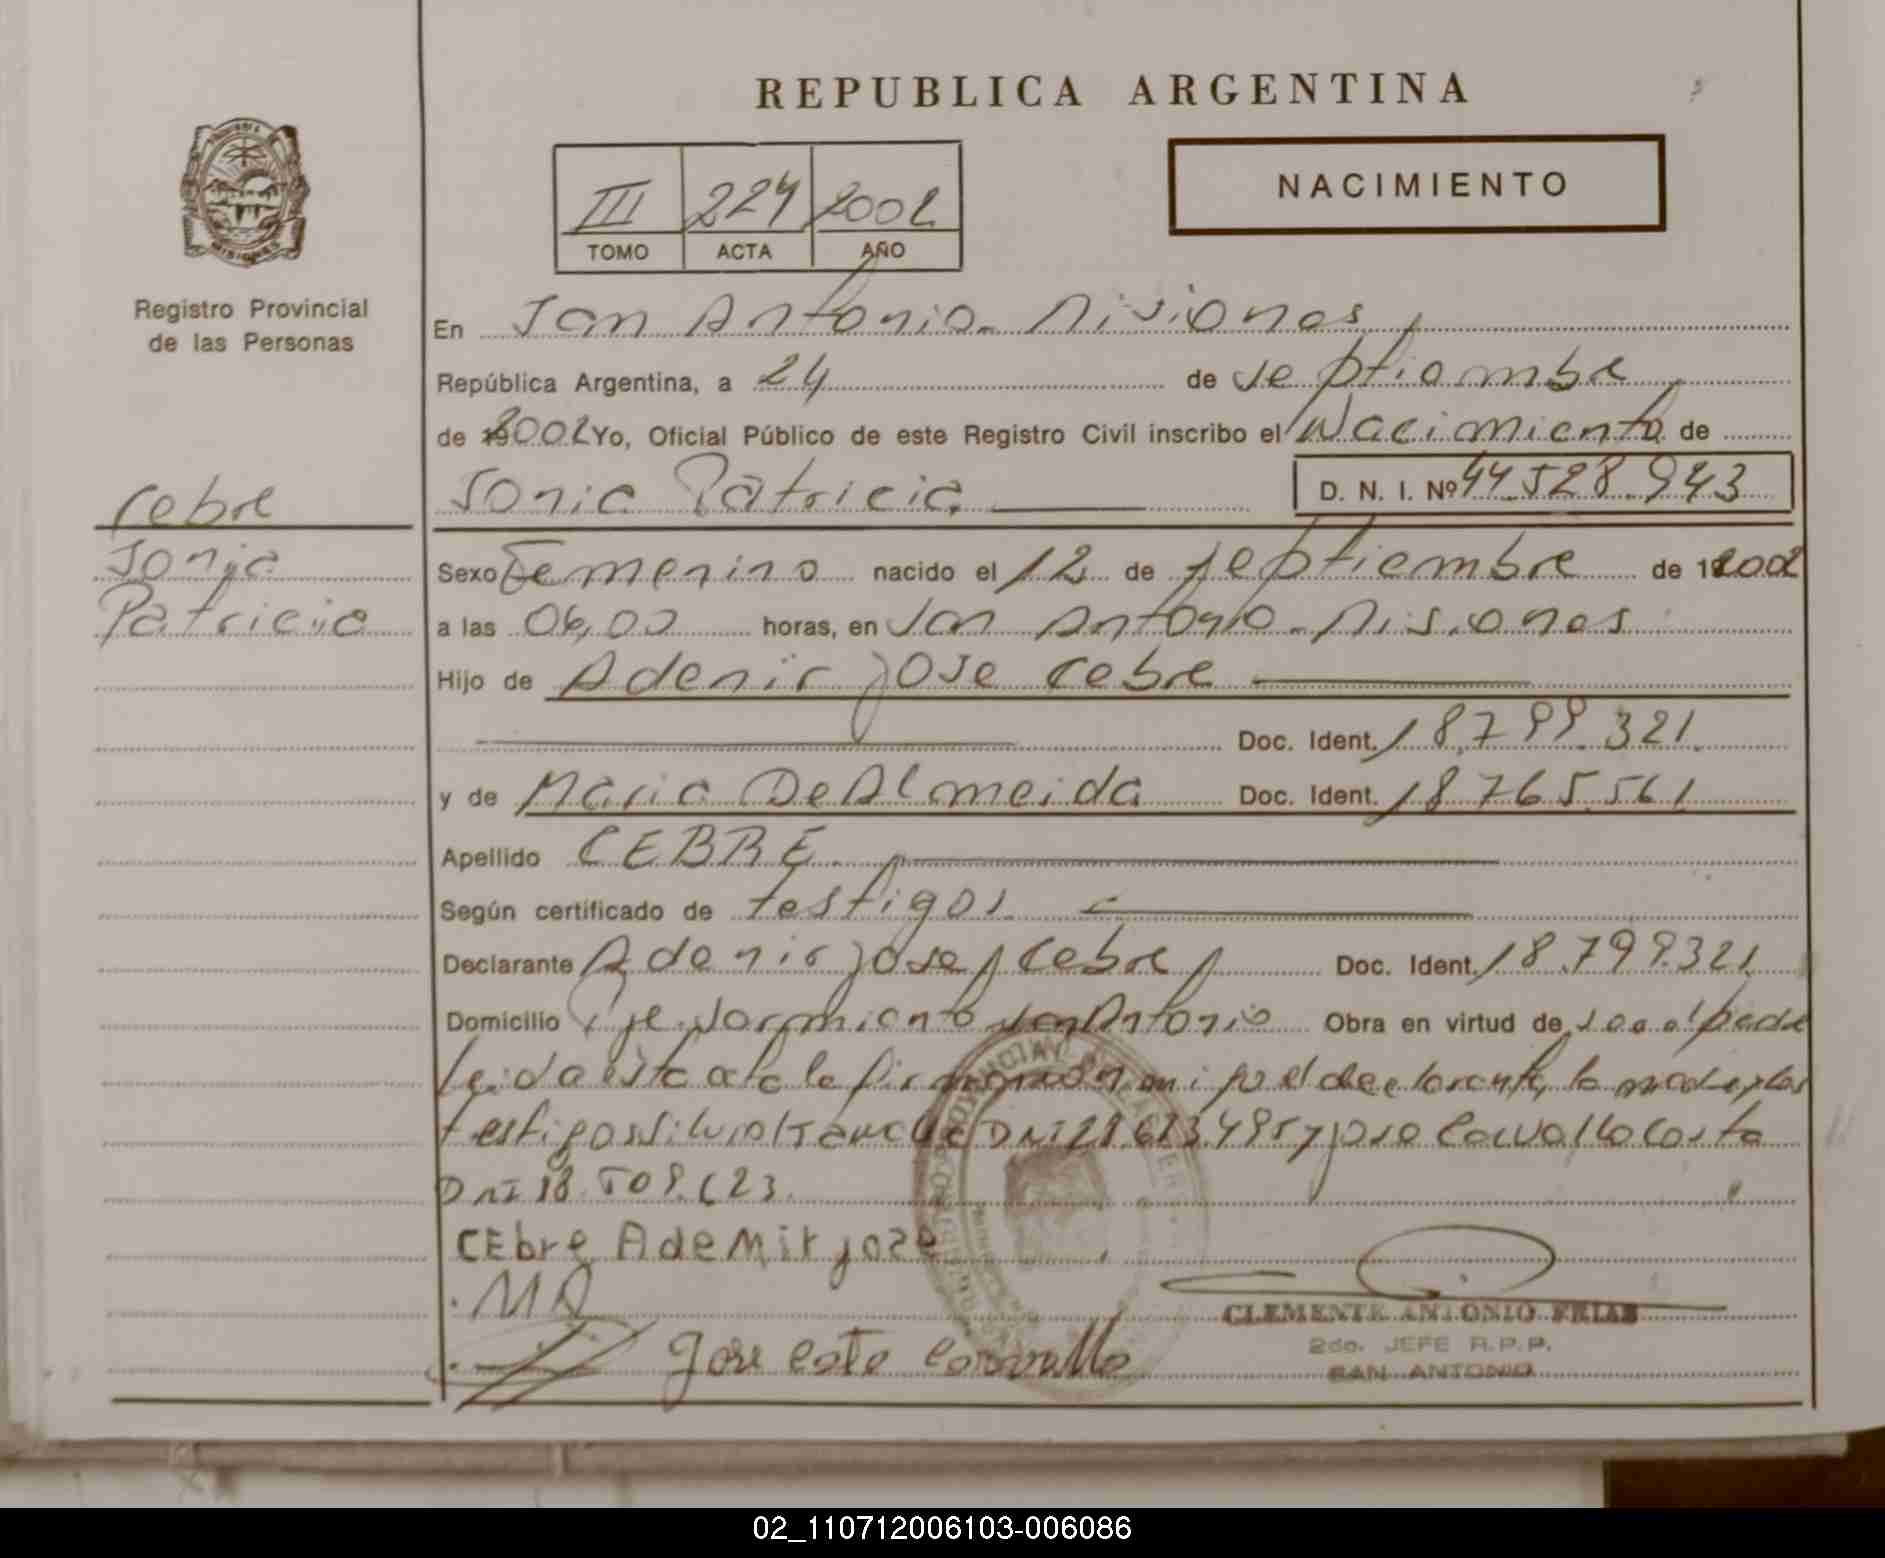 REPUBLICA ARGENTINA
NACIMIENTO
III 224 2002
TOMO ACTA AÑO
MISIONES
Registro Provincial
de las Personas
En San Antonio - Misiones
República Argentina, a 24 de septiembre
de 2002 Yo, Oficial Público de este Registro Civil inscribo el Nacimiento de
Sonia Patricia D. N. I. Nº 44.528.943
Cebre
Sonia
Patricia
Sexo Femenino nacido el 12 de septiembre de 2002
a las 06,00 horas, en San Antonio - Misiones
Hijo de Ademir Jose Cebre
Doc. Ident. 18.799.321
y de Maria De Almeida Doc. Ident. 18.765.561
Apellido CEBRE
Según certificado de testigos
Declarante Ademir Jose Cebre Doc. Ident. 18.799.321
Domicilio Sarmiento San Antonio Obra en virtud de
Leida esta acta la firman con mi go el declarante, la madre y los
testigos DNI y Jose Carvallo Costa
DNI 18.
CEbre AdeMir joze
MA
Jose Costa Carvallo
CLEMENTE ANTONIO FRIAS
2do. JEFE R.P.P.
SAN ANTONIO
02_110712006103-006086